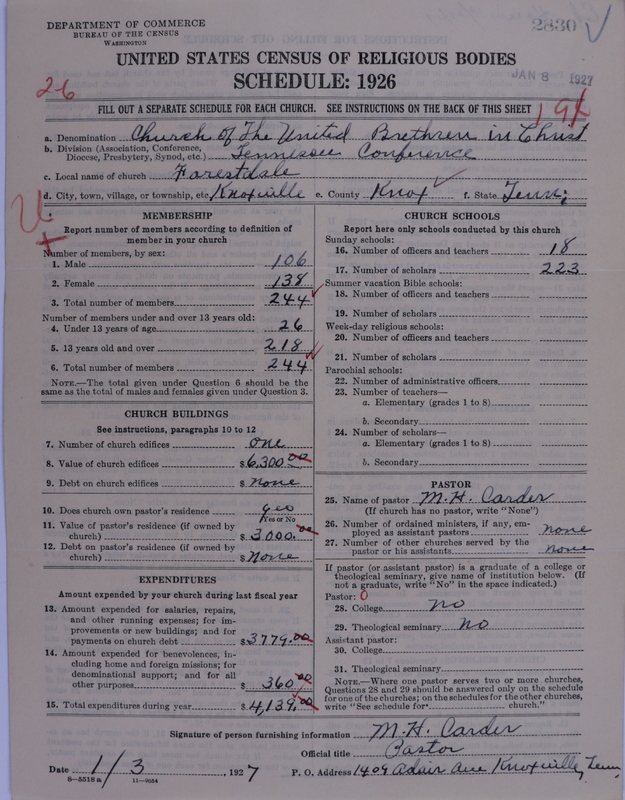 DEPARTMENT OF COMMERCE
BUREAU OF THE CENSUS
WASHINGTON
2830
UNITED STATES CENSUS OF RELIGIOUS BODIES
SCHEDULE: 1926
JAN 8 1927
26
FILL OUT A SEPARATE SCHEDULE FOR EACH CHURCH. SEE INSTRUCTIONS ON THE BACK OF THIS SHEET
a. Denomination Church of The United Brethren in Christ
b. Division (Association, Conference, Diocese, Presbytery, Synod, etc.) Tennessee Conference
c. Local name of church Forestdale
d. City, town, village, or township, etc. Knoxville e. County Knox f. State Tenn;
MEMBERSHIP
Report number of members according to definition of
member in your church
Number of members, by sex:
1. Male 106
2. Female 138
3. Total number of members 244
Number of members under and over 13 years old:
4. Under 13 years of age 26
5. 13 years old and over 218
6. Total number of members 244
NOTE.—The total given under Question 6 should be
same as the total of males and females given under Question 3.
CHURCH BUILDINGS
See instructions, paragraphs 10 to 12
7. Number of church edifices one
8. Value of church edifices $6,300.00
9. Debt on church edifices $ None
10. Does church own pastor's residence yes
Yes or No
11. Value of pastor's residence (if owned by
church) $ 3000.00
12. Debt on pastor's residence (if owned by
church) $ None
EXPENDITURES
Amount expended by your church during last fiscal year
13. Amount expended for salaries, repairs,
and other running expenses; for im-
provements or new buildings; and for
payments on church debt $3779.00
14. Amount expended for benevolences, in-
cluding home and foreign missions; for
denominational support; and for all
other purposes $ 360.00
15. Total expenditures during year $4,139.00
CHURCH SCHOOLS
Report here only schools conducted by this church
Sunday schools:
16. Number of officers and teachers 18
17. Number of scholars 223
Summer vacation Bible schools:
18. Number of officers and teachers
19. Number of scholars
Week-day religious schools:
20. Number of officers and teachers
21. Number of scholars
Parochial schools:
22. Number of administrative officers
23. Number of teachers—
a. Elementary (grades 1 to 8)
b. Secondary
24. Number of scholars—
a. Elementary (grades 1 to 8)
b. Secondary
PASTOR
25. Name of pastor M. H. Carder
(If church has no pastor, write "None")
26. Number of ordained ministers, if any, em-
ployed as assistant pastors none
27. Number of other churches served by the
pastor or his assistants none
If pastor (or assistant pastor) is a graduate of a college or
theological seminary, give name of institution below. (If
not a graduate, write "No" in the space indicated.)
Pastor: 0
28. College no
29. Theological seminary No
Assistant pastor:
30. College
31. Theological seminary
NOTE.—Where one pastor serves two or more churches,
Questions 28 and 29 should be answered only on the schedule
for one of the churches; on the schedules for the other churches,
write "See schedule for church."
Signature of person furnishing information M. H. Carder
Official title Pastor
Date 1/3, 1927 P. O. Address 1409 Adair Ave Knoxville, Tenn
8—5518 a 11—9084